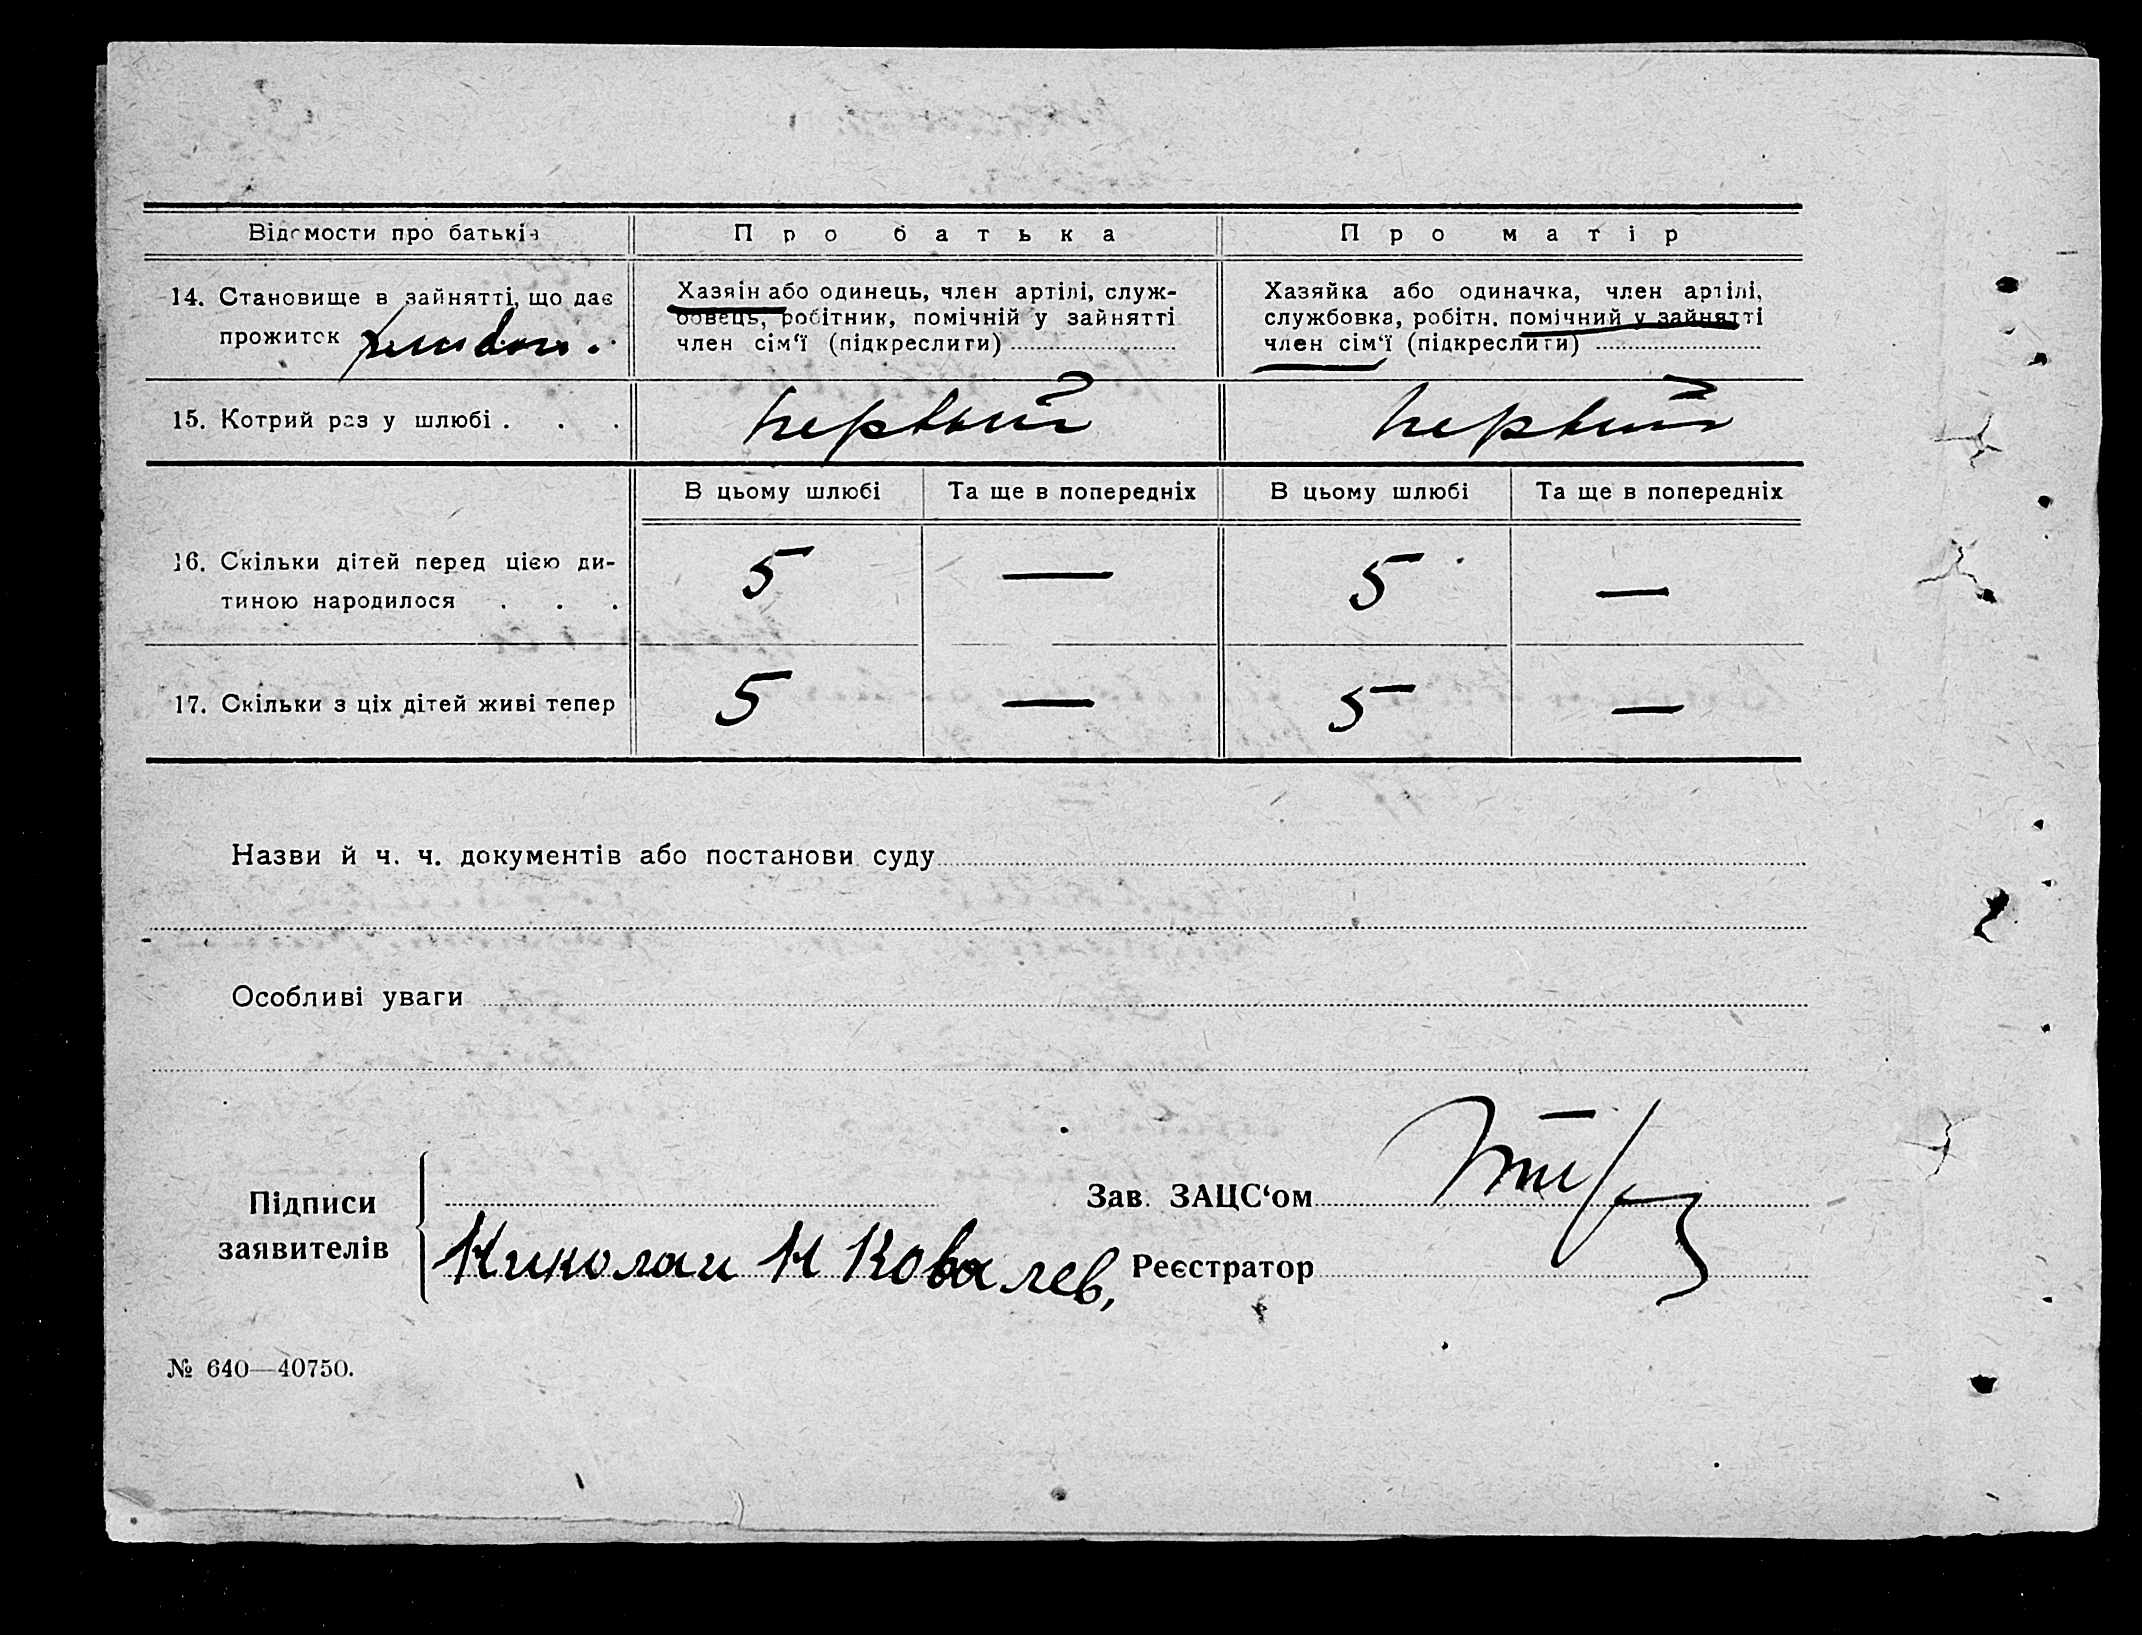 Відомости про батьків
Про батька
Про матір
14. Становище в зайнятті, що дає
прожиток
Хазяїн або одинець, член артілі, служ-
бовець, робітник, помічній у зайнятті
член сім‘ї (підкреслити)
Хазяйка або одиначка, член артілі,
службовка, робітн. помічний у зайнятті
член сім‘ї (підкреслити)
15. Котрий раз у шлюбі . . .
первый
первий
В цьому шлюбі
Та ще в попередніх
В цьому шлюбі
Та ще в попередніх
16. Скільки дітей перед цією ди-
тиною народилося . . .
5
—
5
—
17. Скільки з ціх дітей живі тепер
5
—
5
—
Назви й ч. ч. документів або постанови суду
Особливі уваги
Підписи
заявителів
Николаи Н Ковалев,
Зав. ЗАЦС‘ом
Реєстратор
№ 640—40750.